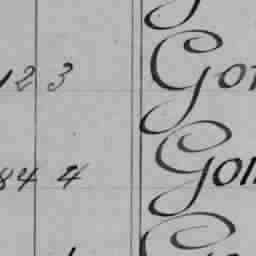 12 3 Gon
84 4 Gon